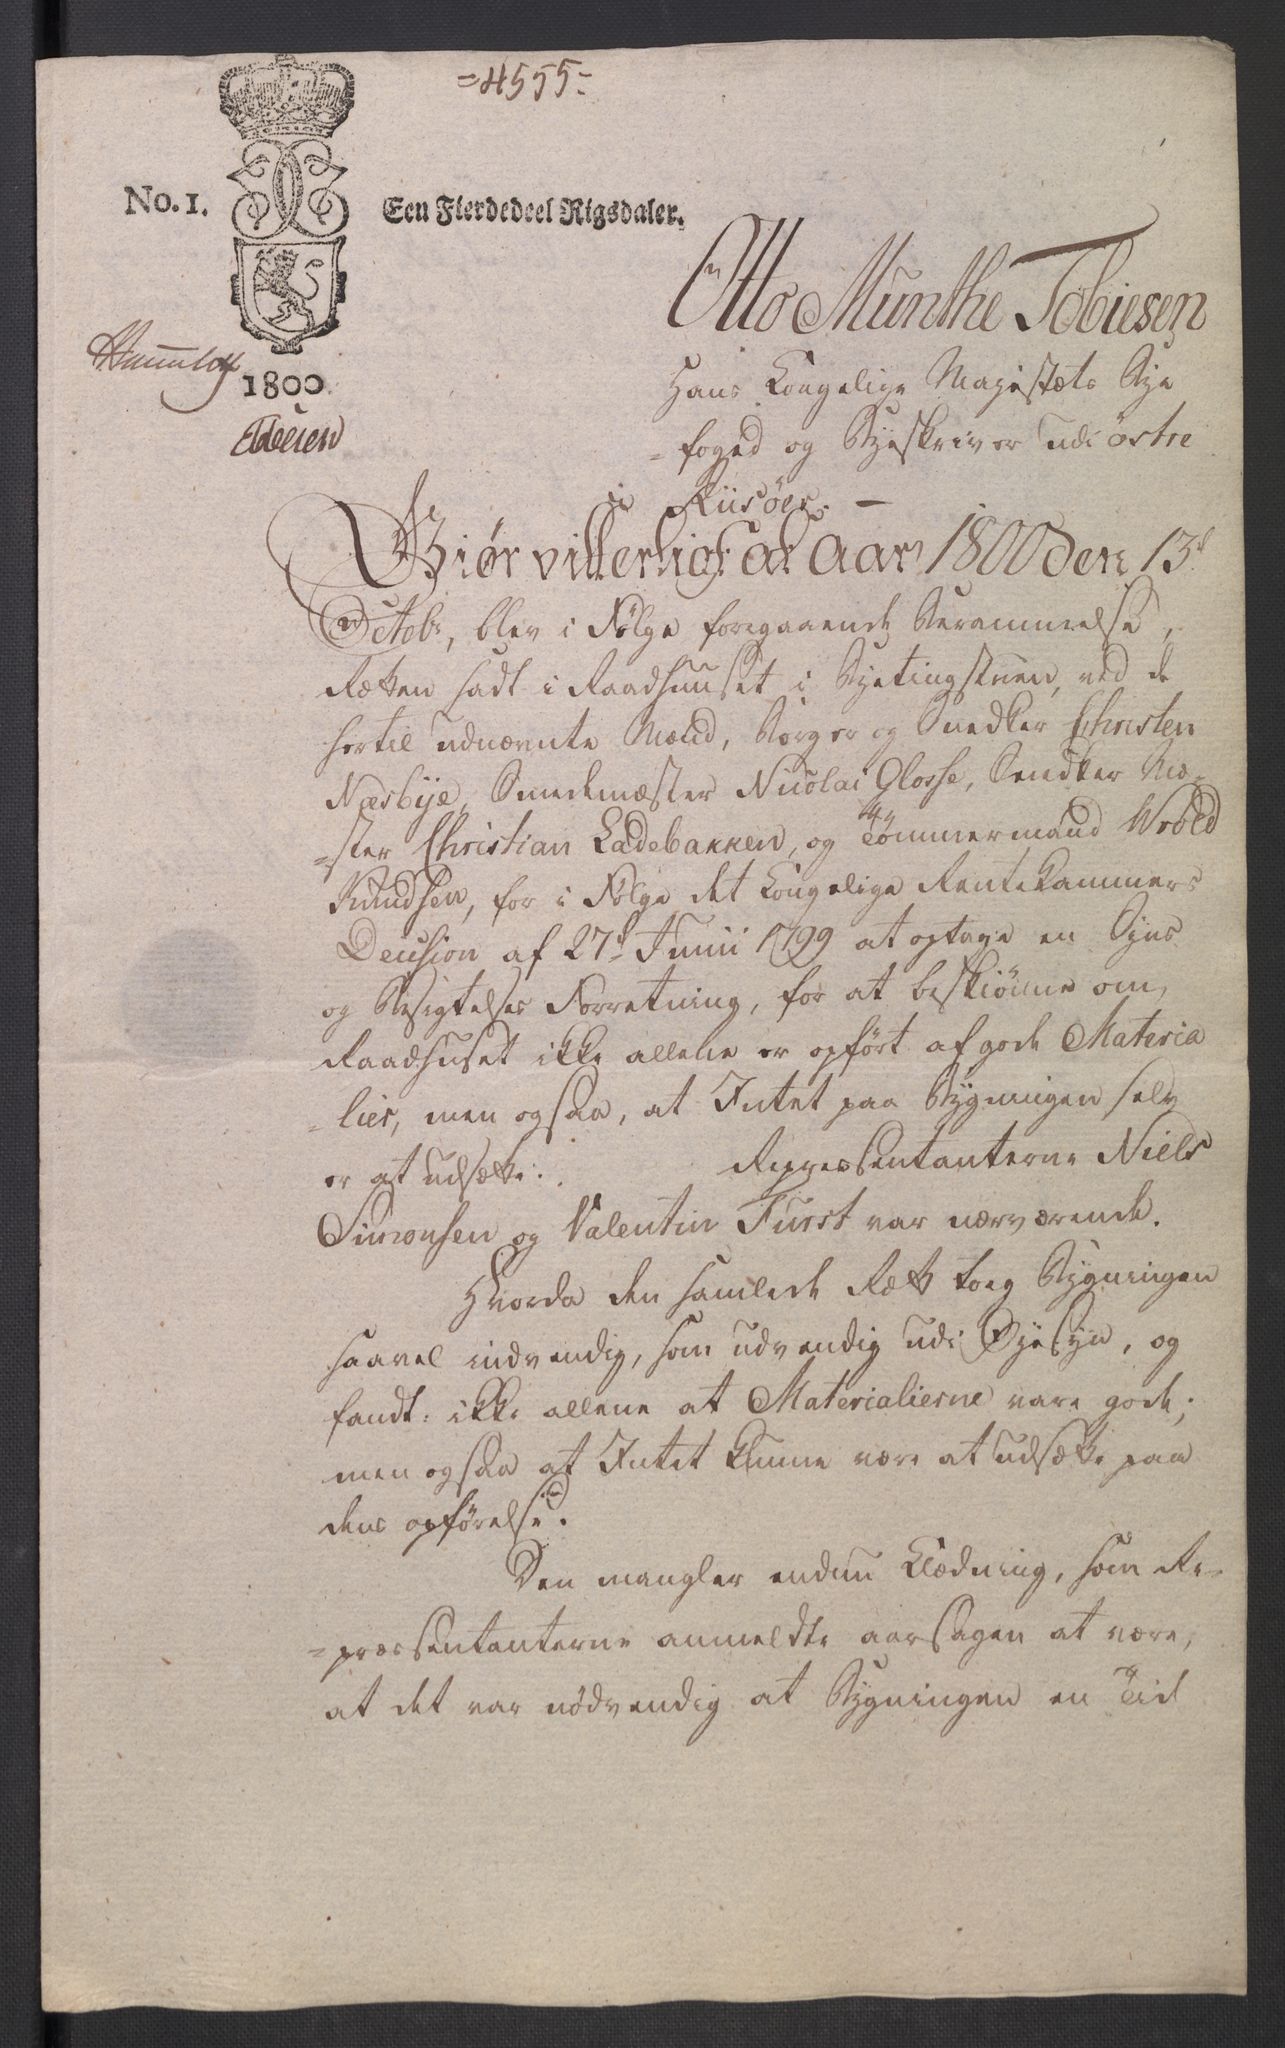 =4555=
No. 1.
Een Fierdedeel Rigsdaler.
1800.
Otto Munthe Tobiesen
Hans Kongelige Majestæts Bye
=foged og Byeskriver udi östre
Riisöer. —
Giör vitterligt at Aar 1800 den 13d
Octobr, blev i Følge foregaaende Berammelse,
Retten sadt i Raadhuuset i Byetingstuen, ved de
hertil udnævnte Mænd, Borger og Snedker Christen
Næsbye, Smedemæster Nicolai Glosse, Snedker Mæ=
=ster Christian Ladebakken, og Tömmermand Wrold
Knudsen, for i Følge det Kongelige Rentekammers
Decision af 27d Junii 1799 at optage en Syns
og Besigtelses Forretning, for at beskiönne om,
Raadhuset ikke allene er opfört af gode Materia
=lier, men og saa, at Intet paa Bygningen selv
er at udsætte. Repræsentanterne Niels
Simonsen og Valentin Furst var nærværende.
Hvorda den samlede Ræt toeg Bygningen
saavel indvendig, som udvendig udi Øyesyn, og
fandt: ikke allene at Materialierne vare gode;
men og saa at Intet kunne være at udsætte paa
dens opførelse.
Den mangler endnu Klædning, som Re=
=præsentanterne anmeldte aarsagen at være,
at det var nödvendig at Bygningen en Tid